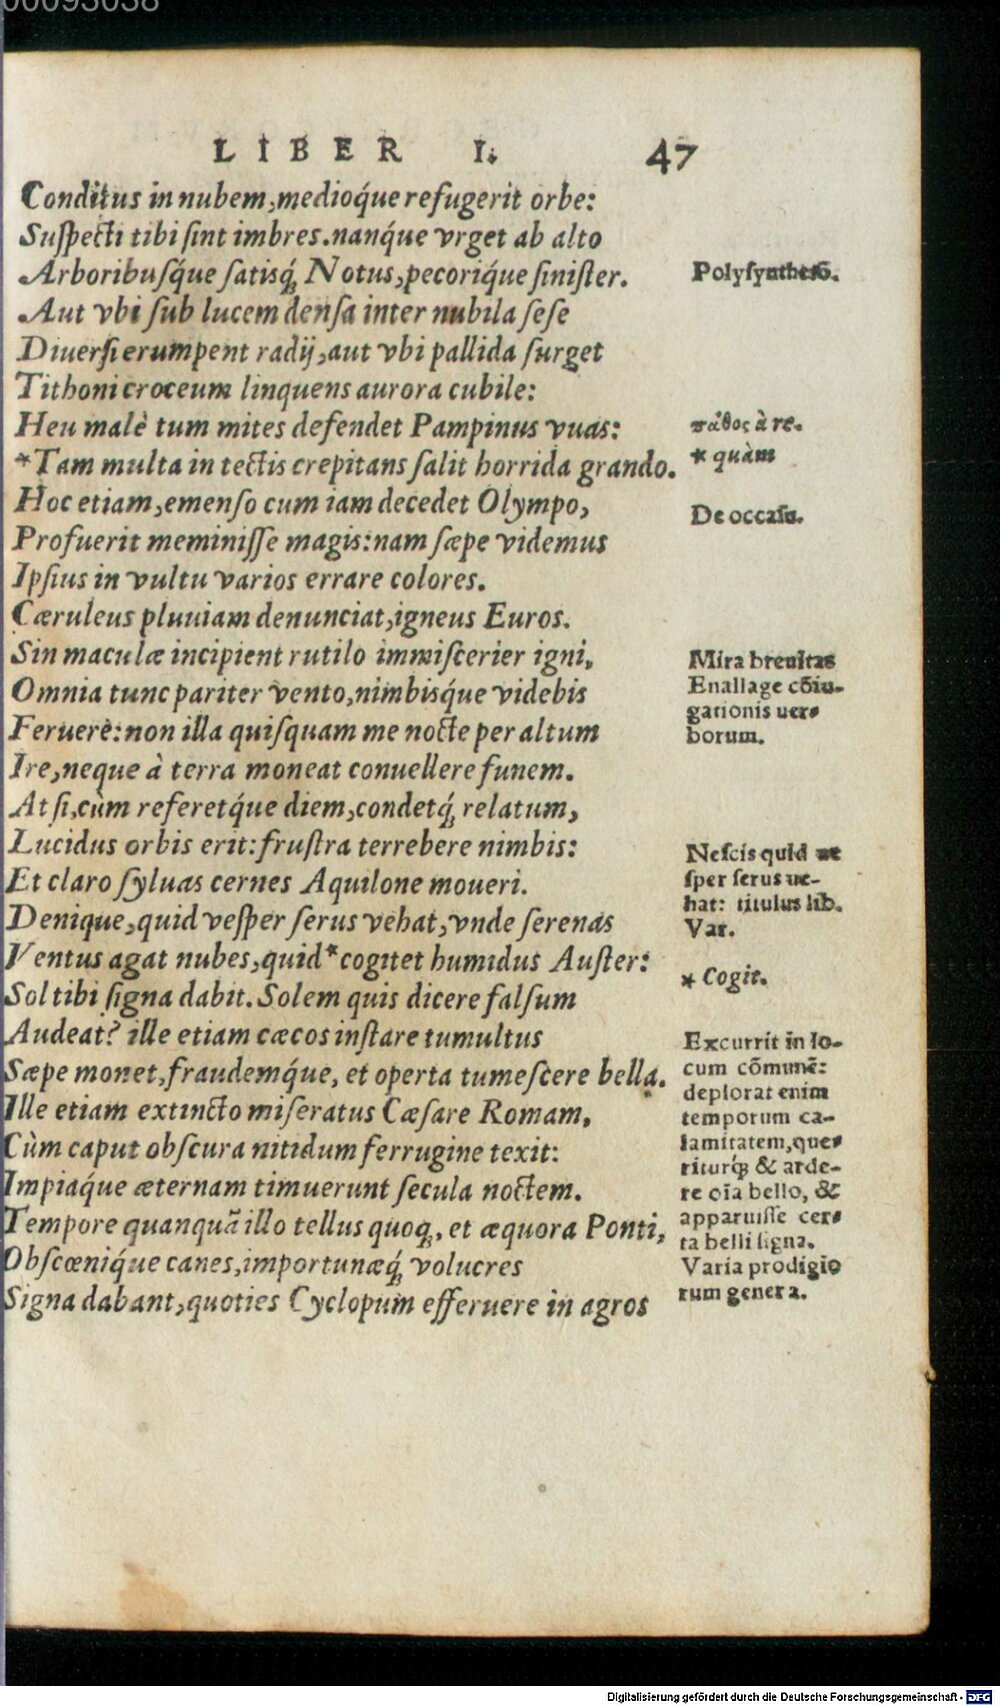 00093038
LIBER I.
47
Conditus in nubem, medioq́ue refugerit orbe:
Suſpecti tibi ſint imbres. nanq́ue vrget ab alto
Arboribuſq́ue ſatisq́; Notus, pecoriq́ue ſiniſter.
Polyſyntheto͂.
Aut vbi ſub lucem denſa inter nubila ſeſe
Diuerſi erumpent radij, aut vbi pallida ſurget
Tithoni croceum linquens aurora cubile:
Heu malè tum mites defendet Pampinus vuas:
πάθος à re.
*Tam multa in tectis crepitans ſalit horrida grando.
* quàm
Hoc etiam, emenſo cum iam decedet Olympo,
De occaſu.
Profuerit meminiſſe magis: nam ſæpe videmus
Ipſius in vultu varios errare colores.
Cæruleus pluuiam denunciat, igneus Euros.
Sin maculæ incipient rutilo immiſcerier igni,
Mira breuitas
Omnia tunc pariter vento, nimbisq́ue videbis
Enallage cõiu-
gationis uer-
Feruerè: non illa quiſquam me nocte per altum
borum.
Ire, neque à terra moneat conuellere funem.
At ſi, cùm referetq́ue diem, condetq́; relatum,
Lucidus orbis erit: fruſtra terrebere nimbis:
Neſcis quid ue
Et claro ſyluas cernes Aquilone moueri.
ſper ſerus ue-
hat: titulus lib.
Denique, quid veſper ſerus vehat, vnde ſerenas
Var.
Ventus agat nubes, quid *cogitet humidus Auſter:
* Cogit.
Sol tibi ſigna dabit. Solem quis dicere falſum
Audeat? ille etiam cæcos inſtare tumultus
Excurrit in lo-
Sæpe monet, fraudemq́ue, et operta tumeſcere bella.
cum cõmunẽ:
deplorat enim
Ille etiam extincto miſeratus Cæſare Romam,
temporum ca-
Cùm caput obſcura nitidum ferrugine texit:
lamitatem, que-
riturq́; & arde-
Impiaq́ue æternam timuerunt ſecula noctem.
re oĩa bello, &
Tempore quanquã illo tellus quoq;, et æquora Ponti,
apparuiſſe cer-
ta belli ſigna.
Obſcœniq́ue canes, importunæq́; volucres
Varia prodigio
Signa dabant, quoties Cyclopum efferuere in agros
rum genera.
Digitalisierung gefördert durch die Deutsche Forschungsgemeinschaft - DFG